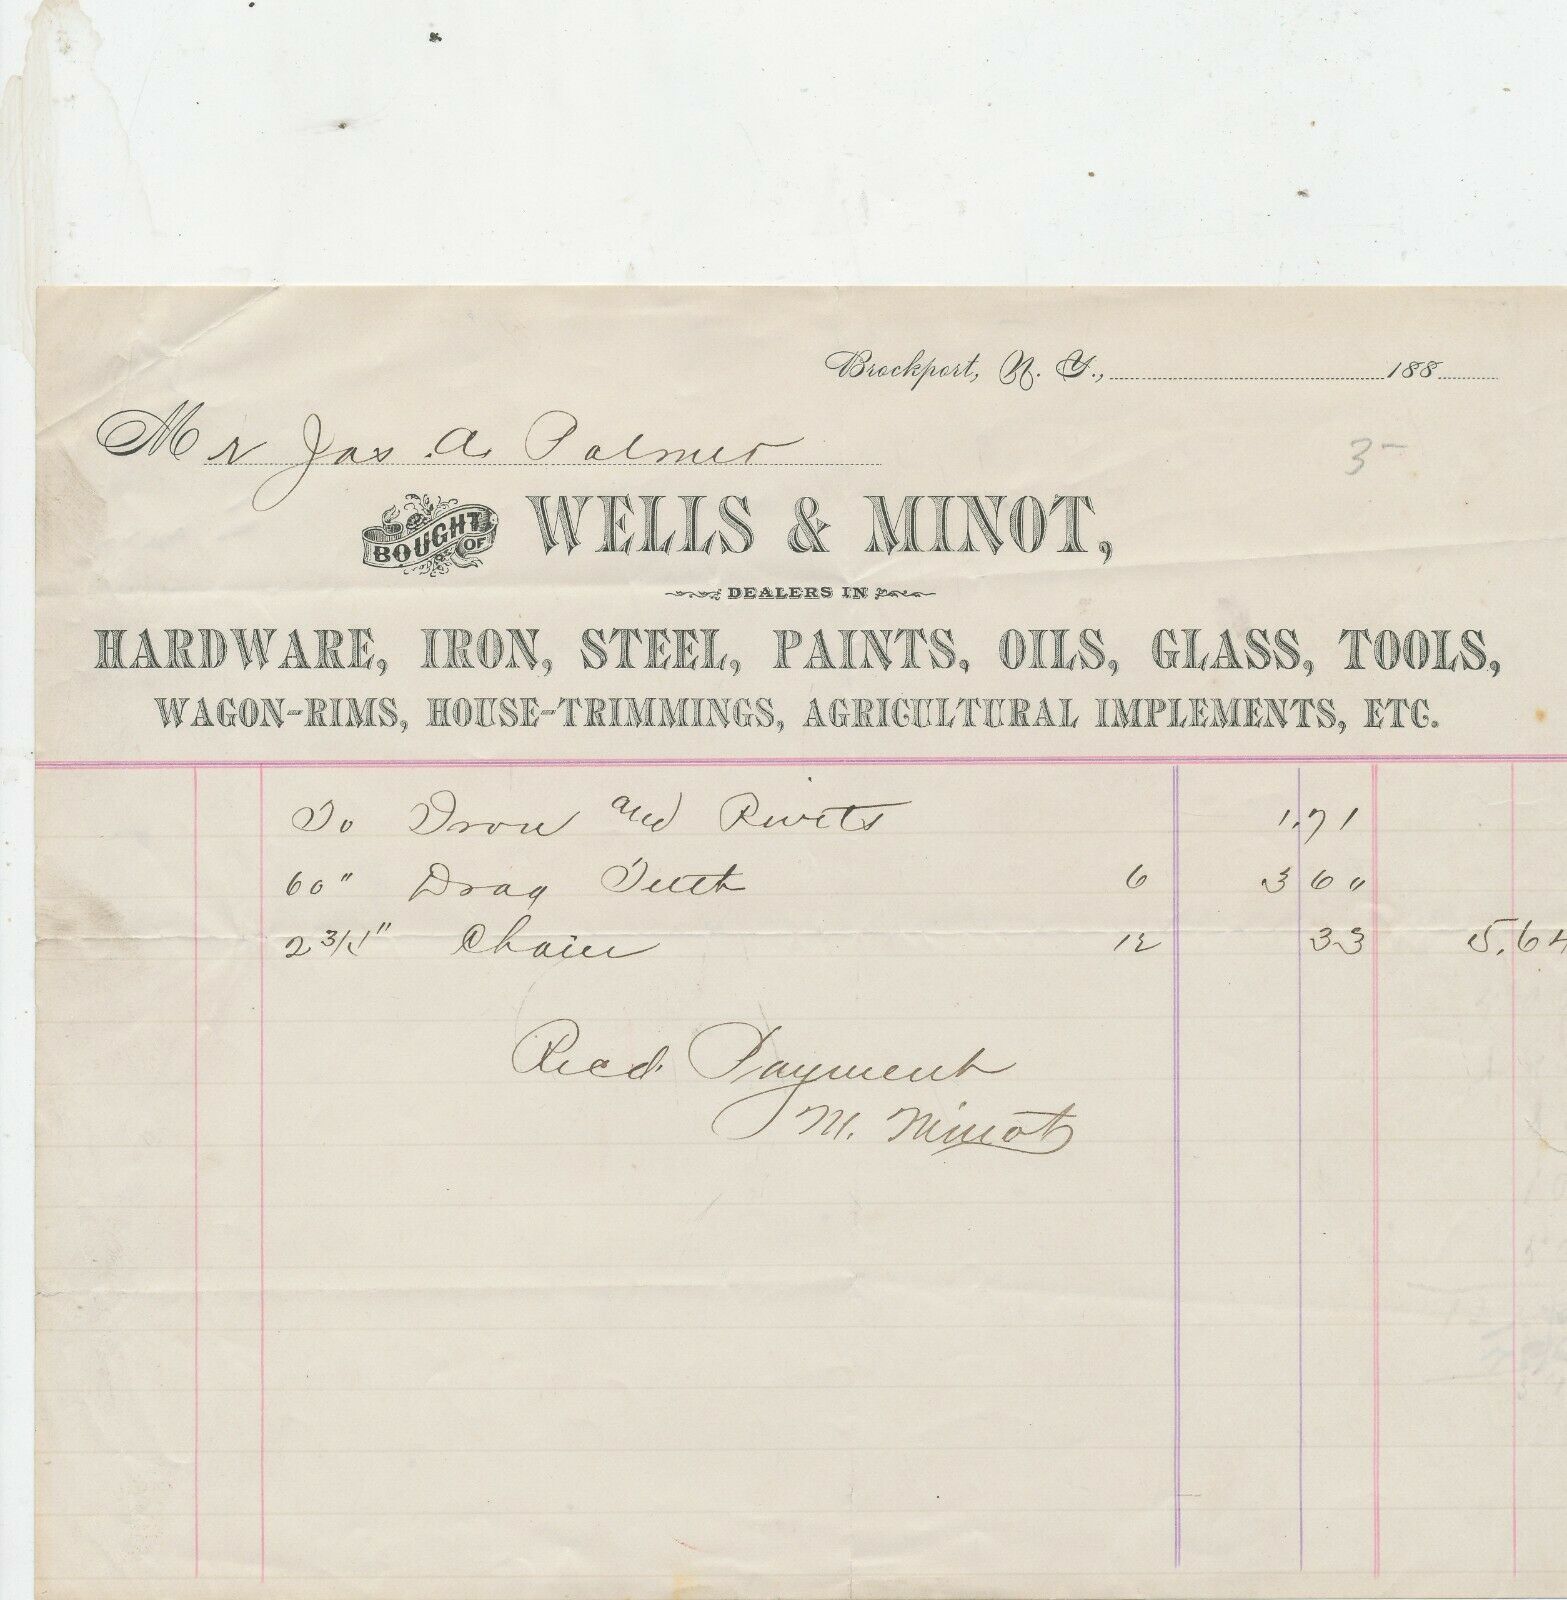 Brockport, N. Y., 188
Mr Jas. A. Palmer
3-
BOUGHT OF WELLS & MINOT,
DEALERS IN
HARDWARE, IRON, STEEL, PAINTS, OILS, GLASS, TOOLS,
WAGON-RIMS, HOUSE-TRIMMINGS, AGRICULTURAL IMPLEMENTS, ETC.
To Iron and Rivets 1.71
60" Drag Teeth 6 3 60
2 3/4" Chain 12 33 5.64
Recd. Payment
M. Minot